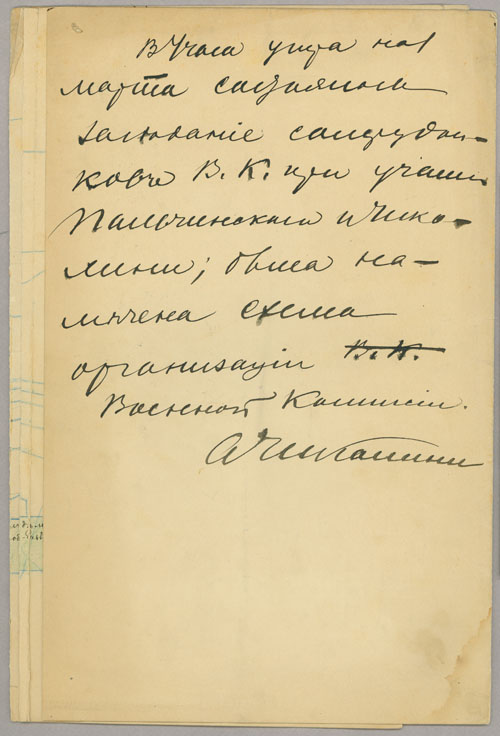 В 4 часа утра на 1
марта состоялось
заседаніе сотрудни-
ковъ В. К. при участіи
Пальчинскаго и Чико-
лини; была на-
мѣчена схема
организаціи В. К.
Военной Комиссіи.
АЧиколини